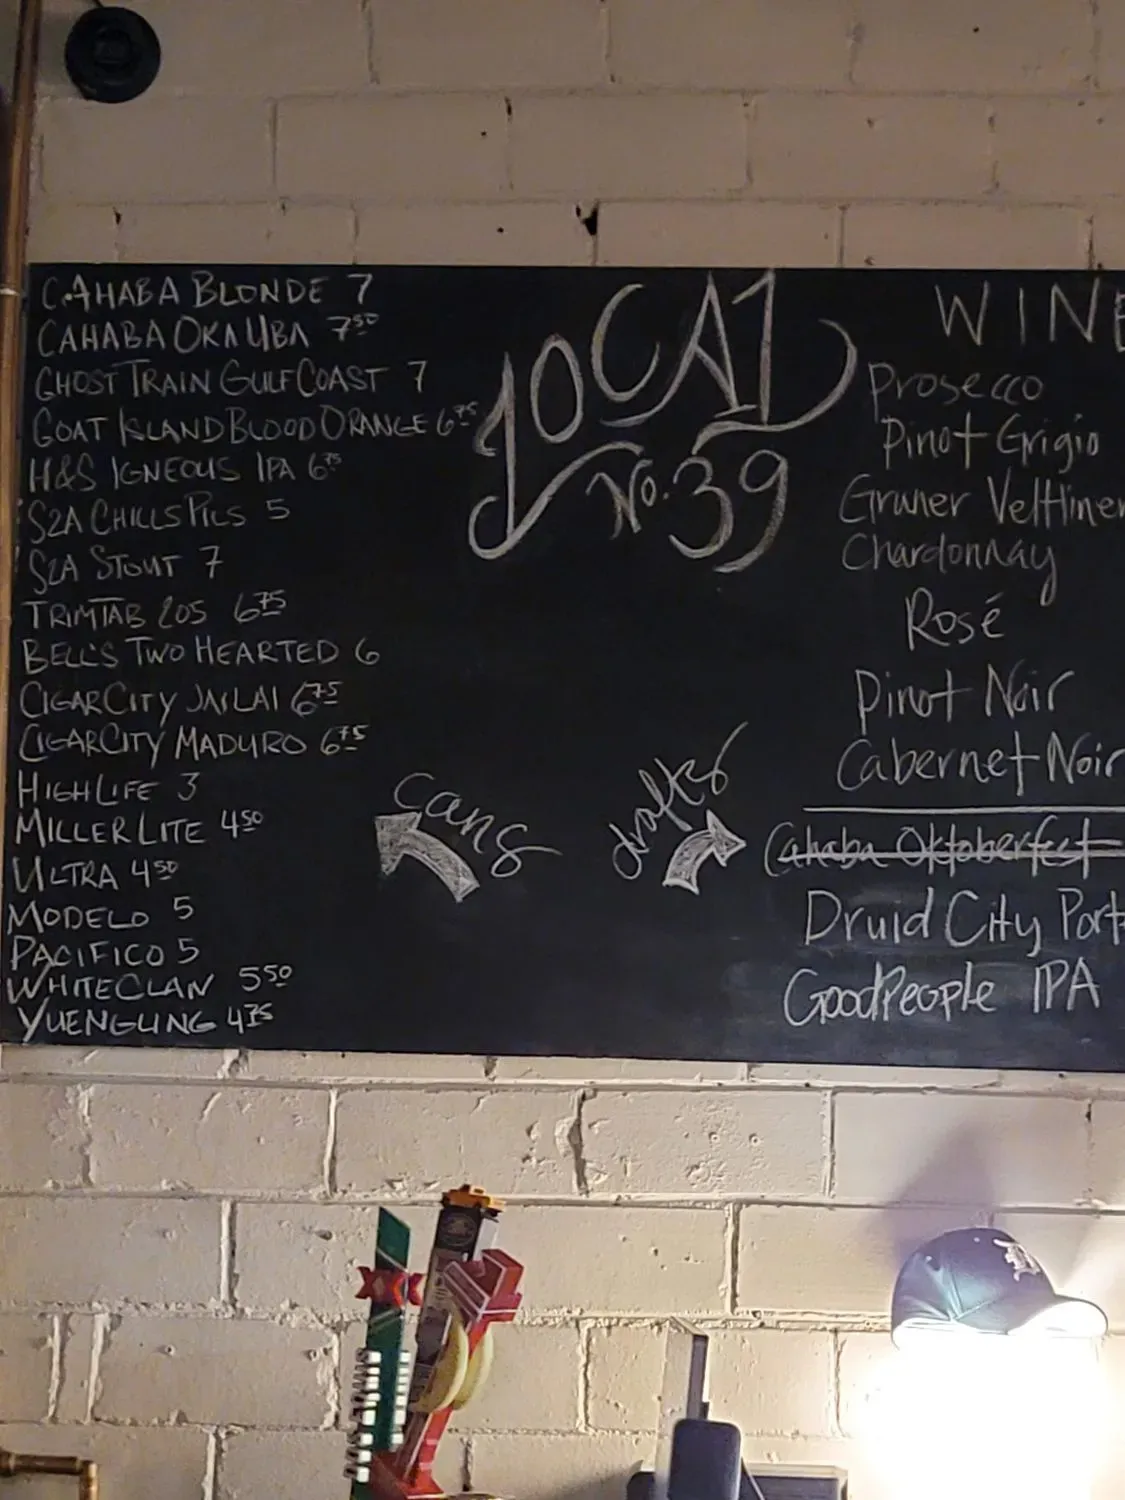 CAHABA BLONDE 7
CAHABA OKA UBA 7.50
GHOST TRAIN GULF COAST 7
GOAT ISLAND BLOOD ORANGE 6.75
H&S IGNEOUS IPA 6.75
S2A CHILLS PILS 5
S2A STOUT 7
TRIMTAB 205 6.75
BELL'S TWO HEARTED 6
CIGAR CITY JAILAI 6.75
CIGAR CITY MADURO 6.75
HIGH LIFE 3
MILLER LITE 4.50
ULTRA 4.50
MODELO 5
PACIFICO 5
WHITECLAW 5.50
YUENGLING 4.75
LOCAL
No. 39
cans
drafts
WINE
Prosecco
Pinot Grigio
Gruner Veltliner
Chardonnay
Rosé
Pinot Noir
Cabernet Noir
Cahaba Oktoberfest
Druid City Port
GoodPeople IPA